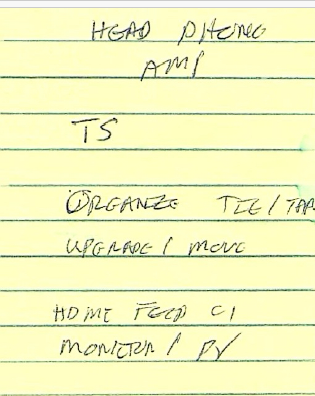 HEAD PHONE
AMP
TS
ORGANIZE TIE/TAP
UPGRADE / MOVE
HOME FEED CI
MONITOR / PV